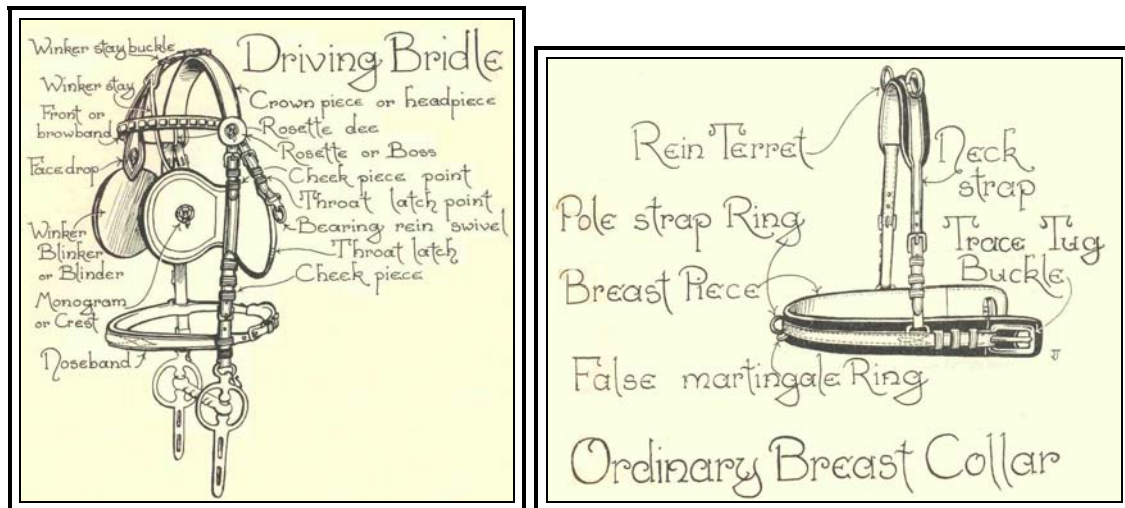 Driving Bridle
Winker stay buckle
Winker stay
Front or
browband
Facedrop
Winker
Blinker
or Blinder
Monogram
or Crest
Noseband
Crown piece or headpiece
Rosette dee
Rosette or Boss
Cheek piece point
Throat latch point
Bearing rein swivel
Throat latch
Cheek piece
Rein Terret
Neck
strap
Pole strap Ring
Trace Tug
Buckle
Breast Piece
False martingale Ring
Ordinary Breast Collar